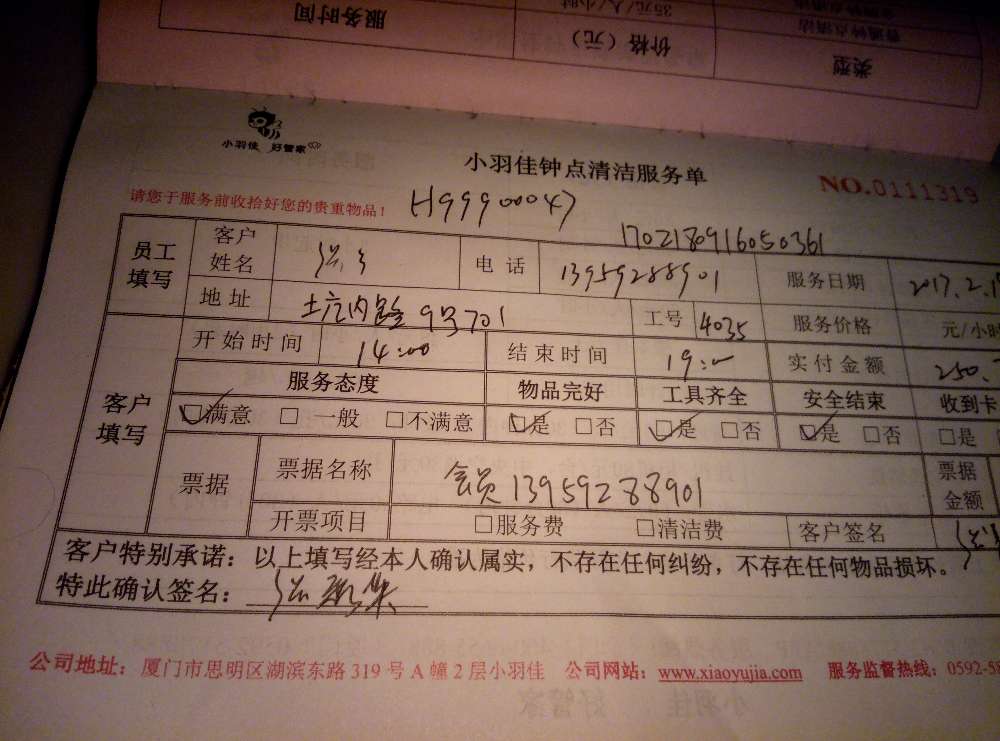 服务时间
价格（元）
类型
35元/人/小时
普通钟点清洁
小羽佳 好管家
小羽佳钟点清洁服务单
NO.0111319
请您于服务前收拾好您的贵重物品！
H99900047
1702180916050361
员工填写 客户姓名 电话 13959288901 服务日期 2017.2.1
地址 9号701 工号 4035 服务价格 元/小时
客户填写 开始时间 14:00 结束时间 19:00 实付金额 250.
服务态度 物品完好 工具齐全 安全结束 收到卡
☑满意 □一般 □不满意 ☑是 □否 ☑是 □否 ☑是 □否 □是
票据 票据名称 会员13959288901 票据金额
开票项目 □服务费 □清洁费 客户签名
客户特别承诺：以上填写经本人确认属实，不存在任何纠纷，不存在任何物品损坏。
特此确认签名：
公司地址：厦门市思明区湖滨东路319号A幢2层小羽佳 公司网站：www.xiaoyujia.com 服务监督热线：0592-58